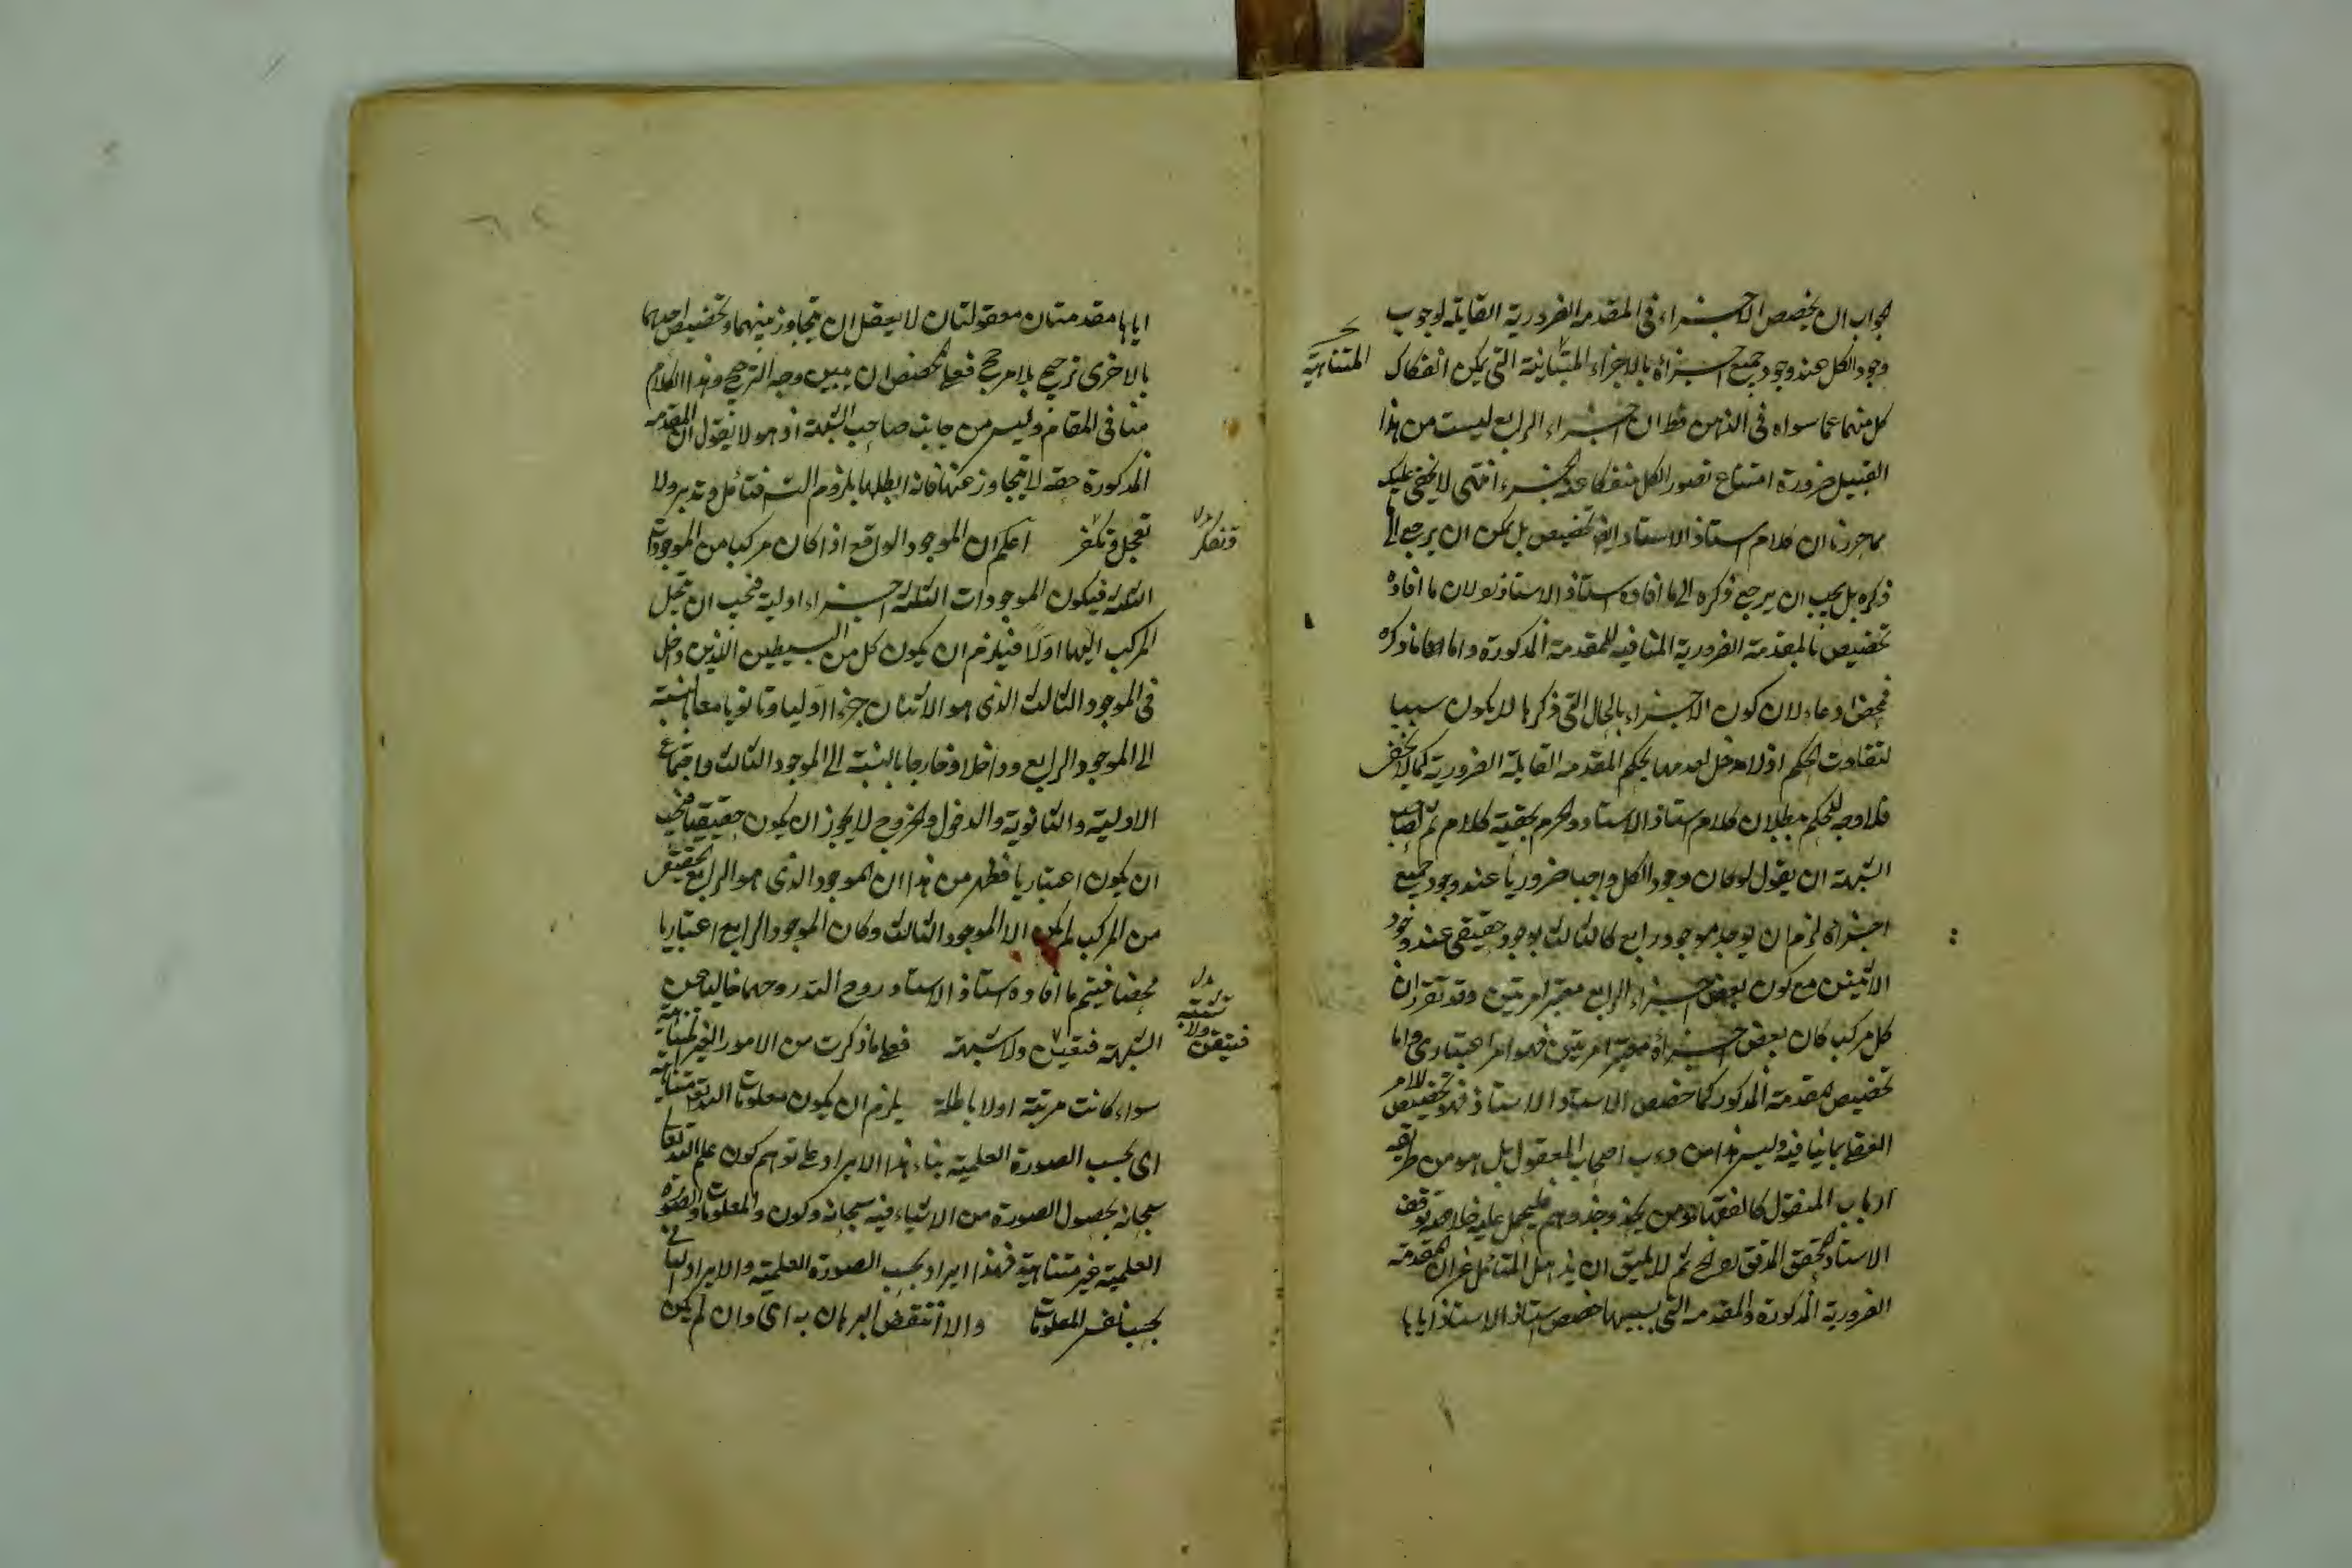 جواب ان يخصص الاجزاء في المقدمه الضرورية القايله لوجوب
وجود الكل عند وجود جميع اجزائه بالاجزاء المتباينة التي يمكن انفكاك
المتناهية
كل منهما عما سواه في الذهن فظ ان اجزاء الرابع ليست من هذا
القبيل ضرورة امتناع تصور الكل منفكا عن الجزء انتهى لا يخفى عليك
مما حررنا ان كلام استاذ الاستاد ايض تخصيص بل يمكن ان يرجع الى ما
ذكره بل يجب ان يرجع ذكره الى ما افاده استاذ الاستاذ لان ما افاده
تخصيص بالمقدمة الضرورية المنافيه للمقدمة المذكورة واما ما ذكره
فمحض ادعاء لان كون الاجزاء بالحال التي ذكرها لا يكون سببا
لتفاوت الحكم اذ لا مدخل لعدمها بحكم المقدمه القايلة الضرورية كما لا يخفى
فلا وجه للحكم ببطلان كلام استاذ الاستاد والجزم بحقية كلام ثم لصاحب
الشبهة ان يقول لو كان وجود الكل واجبا ضروريا عند وجود جميع
اجزائه لزم ان يوجد موجود رابع كالثالث بوجود حقيقي عند وجود
الاثنين مع كون بعض اجزاء الرابع معتبرا مرتين وقد تقرر ان
كل مركب كان بعض اجزائه معتبرا مرتين فهو امر اعتباري واما
تخصيص المقدمة المذكور كما خصص الاستاد الاستاذ فهو تخصيص للامر
العقلي بما ينافيه وليس هذا من دءب اصحاب المعقول بل هو من طريقه
ارباب المنقول كالفقهاء ومن يحذو حذوهم
الاستاد المحقق المدقق ثم لا يليق ان يذهل المتأمل عن ان المقدمة
الضرورية المذكورة والمقدمه التي بسببها خصص استاذ الاستاذ اياها
اياها مقدمتان معقولتان لا يعقل ان يتجاوز منهما وتخصيص احدهما
بالاخرى ترجيح بلا مرجح فعلى المخصص ان يبين وجه الترجيح وهذا الكلام
منا في المقام وليس من جانب صاحب الشبهة اذ هو لا يقول ان المقدمه
المذكورة حقه لا يتجاوز عنها فانه ابطلها بلزوم التس فتأمل وتدبر ولا
تعجل وتفكر اعلم ان الموجود الواقع اذا كان مركبا من الموجودات
وتفكر
الثلثه فيكون الموجودات الثلثه اجزاء اولية فيجب ان ينحل
المركب اليها اولا فيلزم ان يكون كل من البسيطين اللذين دخل
في الموجود الثالث الذي هو الاثنان جزءا اوليا وثانويا معا بالنسبة
الى الموجود الرابع وداخلا وخارجا بالنسبة الى الموجود الثالث واجتماع
الاولية والثانوية والدخول والخروج لا يجوز ان يكون حقيقيا فيجب
ان يكون اعتباريا فظهر من هذا ان الموجود الذي هو الرابع الحقيقي
من المركب لم يكن الا الموجود الثالث وكان الموجود الرابع اعتباريا
محضا فيتم ما افاده استاذ الاستاد روح الله روحهما خاليا عن
الشبهة فتيقن ولا تشبهه فعلى ما ذكرت من الامور الغير المتناهية
فتيقن ولا تشتبه
سواء كانت مرتبة اولا باطلة يلزم ان يكون معلومات الله تعالى متناهية
اى بحسب الصورة العلمية بناء هذا الايراد على توهم كون علم الله تعالى
سبحانه بحصول الصورة من الاشياء فيه سبحانه وكون والمعلومات والصورة
العلمية غير متناهية فهذا ايراد بحسب الصورة العلمية والايراد الثاني
بحسب نفس المعلومات والا انتقض البرهان به اى وان لم يكن